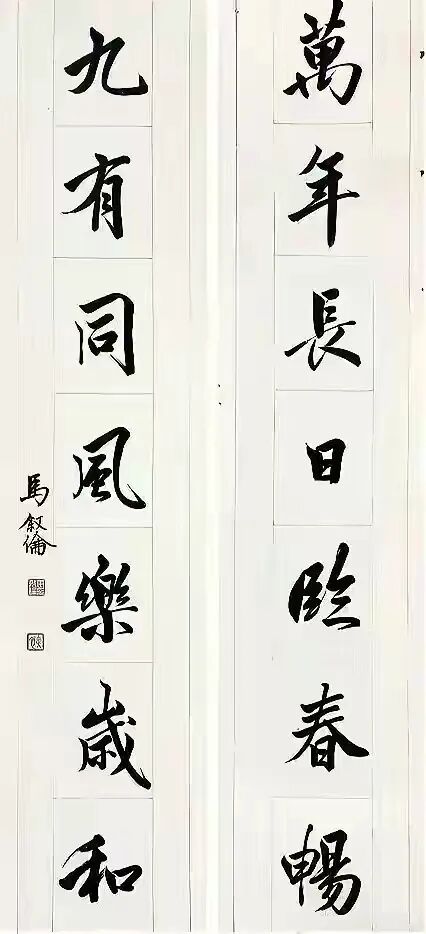 萬年長日臨春暢
九有同風樂歲和
馬叙倫